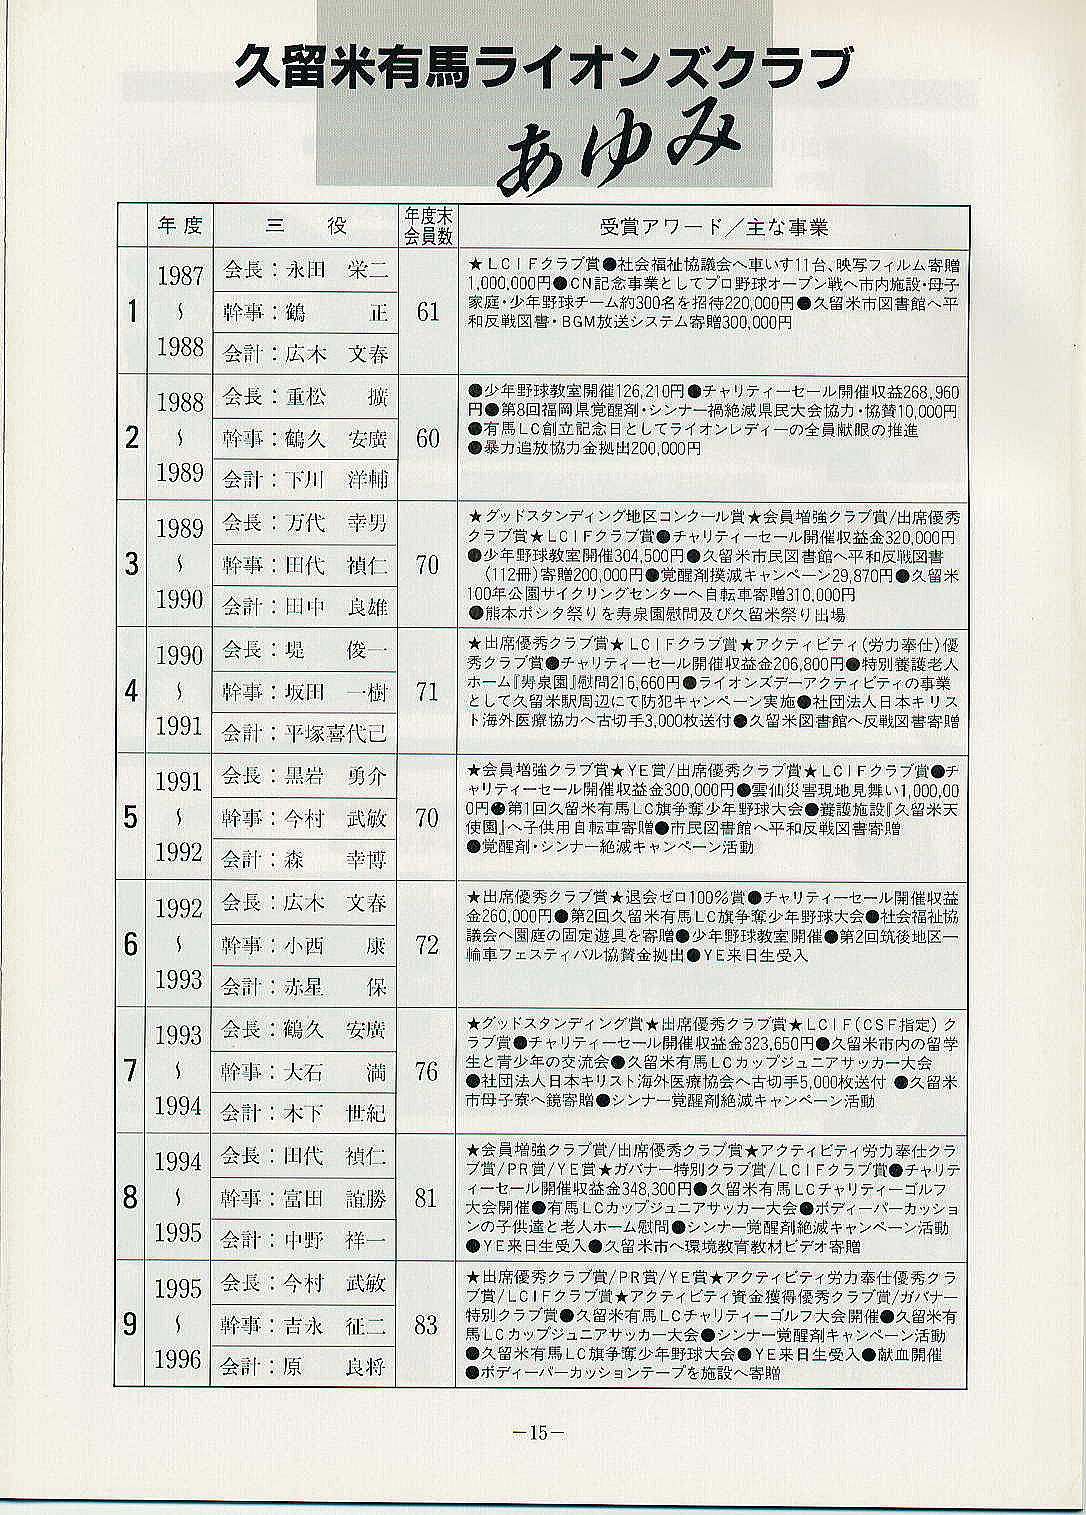 久留米有馬ライオンズクラブ
あゆみ
年度 三役 年度末会員数 受賞アワード／主な事業
1
1987
〜
1988
会長：永田 栄二
幹事：鶴 正
会計：広木 文春
61
★LCIFクラブ賞●社会福祉協議会へ車いす11台、映写フィルム寄贈
1,000,000円●CN記念事業としてプロ野球オープン戦へ市内施設・母子
家庭・少年野球チーム約300名を招待220,000円●久留米市図書館へ平
和反戦図書・BGM放送システム寄贈300,000円
2
1988
〜
1989
会長：重松 擴
幹事：鶴久 安廣
会計：下川 洋輔
60
●少年野球教室開催126,210円●チャリティーセール開催収益268,960
円●第8回福岡県覚醒剤・シンナー禍絶滅県民大会協力・協賛10,000円
●有馬LC創立記念日としてライオンレディーの全員献眼の推進
●暴力追放協力金拠出200,000円
3
1989
〜
1990
会長：万代 幸男
幹事：田代 禎仁
会計：田中 良雄
70
★グッドスタンディング地区コンクール賞★会員増強クラブ賞/出席優秀
クラブ賞★LCIFクラブ賞●チャリティーセール開催収益金320,000円
●少年野球教室開催304,500円●久留米市民図書館へ平和反戦図書
(112冊)寄贈200,000円●覚醒剤撲滅キャンペーン29,870円●久留米
100年公園サイクリングセンターへ自転車寄贈310,000円
●熊本ボシタ祭りを寿泉園慰問及び久留米祭り出場
4
1990
〜
1991
会長：堤 俊一
幹事：坂田 一樹
会計：平塚喜代己
71
★出席優秀クラブ賞★LCIFクラブ賞★アクティビティ(労力奉仕)優
秀クラブ賞●チャリティーセール開催収益金206,800円●特別養護老人
ホーム『寿泉園』慰問216,660円●ライオンズデーアクティビティの事業
として久留米駅周辺にて防犯キャンペーン実施●社団法人日本キリス
ト海外医療協力へ古切手3,000枚送付●久留米図書館へ反戦図書寄贈
5
1991
〜
1992
会長：黒岩 勇介
幹事：今村 武敏
会計：森 幸博
70
★会員増強クラブ賞★YE賞/出席優秀クラブ賞★LCIFクラブ賞●チ
ャリティーセール開催収益金300,000円●雲仙災害現地見舞い1,000,00
0円●第1回久留米有馬LC旗争奪少年野球大会●養護施設『久留米天
使園』へ子供用自転車寄贈●市民図書館へ平和反戦図書寄贈
●覚醒剤・シンナー絶滅キャンペーン活動
6
1992
〜
1993
会長：広木 文春
幹事：小西 康
会計：赤星 保
72
★出席優秀クラブ賞★退会ゼロ100%賞●チャリティーセール開催収益
金260,000円●第2回久留米有馬LC旗争奪少年野球大会●社会福祉協
議会へ園庭の固定遊具を寄贈●少年野球教室開催●第2回筑後地区一
輪車フェスティバル協賛金拠出●YE来日生受入
7
1993
〜
1994
会長：鶴久 安廣
幹事：大石 満
会計：木下 世紀
76
★グッドスタンディング賞★出席優秀クラブ賞★LCIF(CSF指定)ク
ラブ賞●チャリティーセール開催収益金323,650円●久留米市内の留学
生と青少年の交流会●久留米有馬LCカップジュニアサッカー大会
●社団法人日本キリスト海外医療協会へ古切手5,000枚送付 ●久留米
市母子寮へ鏡寄贈●シンナー覚醒剤絶滅キャンペーン活動
8
1994
〜
1995
会長：田代 禎仁
幹事：富田 誼勝
会計：中野 祥一
81
★会員増強クラブ賞/出席優秀クラブ賞★アクティビティ労力奉仕クラ
ブ賞/PR賞/YE賞★ガバナー特別クラブ賞/LCIFクラブ賞●チャリテ
ィーセール開催収益金348,300円●久留米有馬LCチャリティーゴルフ
大会開催●有馬LCカップジュニアサッカー大会●ボディーパーカッショ
ンの子供達と老人ホーム慰問●シンナー覚醒剤絶滅キャンペーン活動
●YE来日生受入●久留米市へ環境教育教材ビデオ寄贈
9
1995
〜
1996
会長：今村 武敏
幹事：吉永 征二
会計：原 良将
83
★出席優秀クラブ賞/PR賞/YE賞★アクティビティ労力奉仕優秀クラ
ブ賞/LCIFクラブ賞★アクティビティ資金獲得優秀クラブ賞/ガバナー
特別クラブ賞●久留米有馬LCチャリティーゴルフ大会開催●久留米有
馬LCカップジュニアサッカー大会●シンナー覚醒剤キャンペーン活動
●久留米有馬LC旗争奪少年野球大会●YE来日生受入●献血開催
●ボディーパーカッションテープを施設へ寄贈
－15－